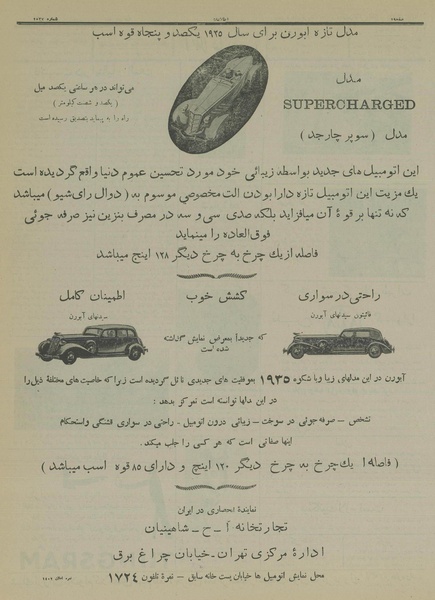 اطلاعات
مدل تازه آبورن برای سال ۱۹۳۵ یکصد و پنجاه قوه اسب
مدل
SUPERCHARGED
مدل (سوپر چارجد)
می‌تواند در هر ساعتی یکصد میل
(یکصد و شصت کیلومتر)
راه را به پیماید بتصدیق رسیده است
این اتومبیل های جدید بواسطه زیبائی خود مورد تحسین عموم دنیا واقع گردیده است
یك مزیت این اتومبیل تازه دارا بودن آلت مخصوصی موسوم به (دوال رای‌شیو) میباشد
که نه تنها بر قوهٔ آن میافزاید بلکه صدی سی و سه در مصرف بنزین نیز صرفه جوئی
فوق‌العاده را مینماید
فاصله از یك چرخ به چرخ دیگر ۱۲۸ اینج میباشد
راحتی در سواری
کشش خوب
اطمینان کامل
فائیتون سیدنهای آبورن
سیدنهای آبورن
که جدیداً بمعرض نمایش گذاشته
شده است
آبورن در این مدلهای زیبا و با شکوه ۱۹۳۵ بموفقیت های جدیدی نائل گردیده است زیرا که خاصیت های مختلفهٔ ذیل را
در این مدلها توانسته است تمرکز بدهد :
تشخص - صرفه جوئی در سوخت - زیبائی درون اتومبیل - راحتی در سواری قشنگی و استحکام
اینها صفاتی است که هر کسی را جلب میکند.
(فاصله از یك چرخ به چرخ دیگر ۱۲۰ اینچ و دارای ۸۵ قوه اسب میباشد)
نماینده انحصاری در ایران
تجارتخانه آ - ح - شاهینیان
ادارهٔ مرکزی تهران - خیابان چراغ برق
محل نمایش اتومبیل ها خیابان پست خانه سابق - نمرهٔ تلفون ۱۷۲۴